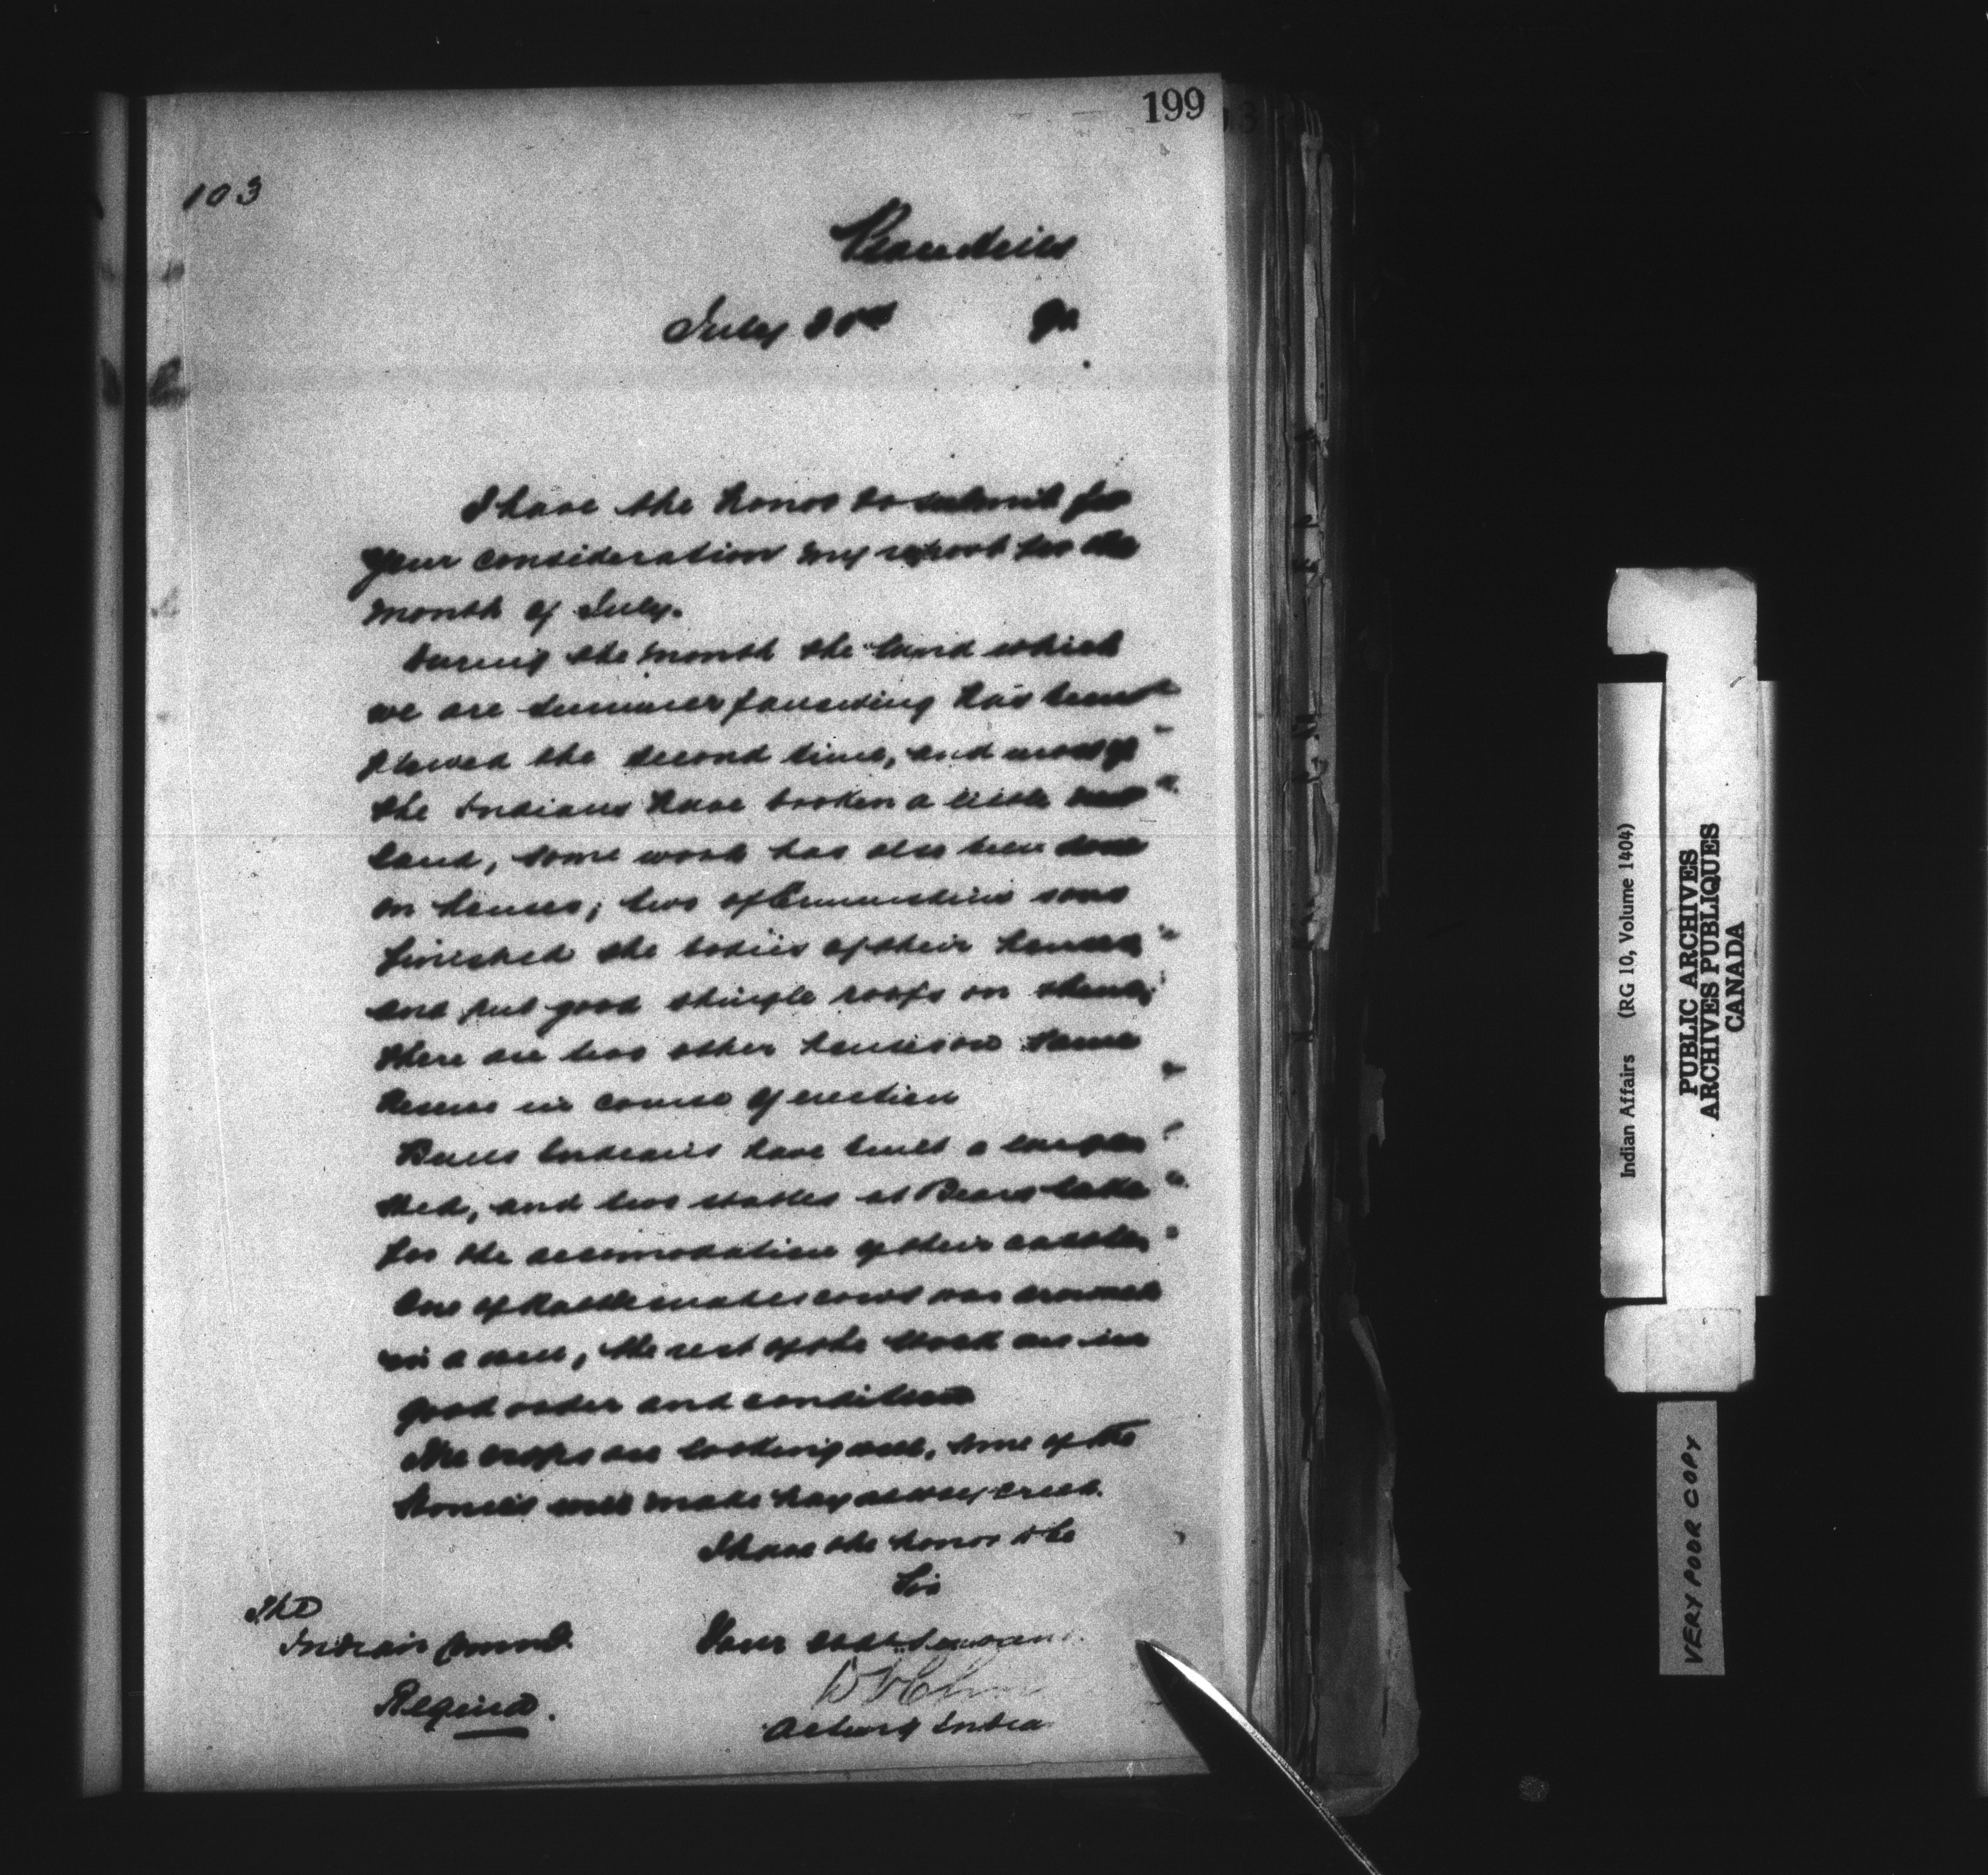 199
103
July 30th 90
I have the honor to submit for
your consideration my report for the
month of July.
During the month the land which
we are summer fallowing has been
plowed the second time, and most of
the Indians have broken a little new
land, some work has also been done
on houses; two of sons
finished the bodies of their houses,
and put good shingle roofs on them;
there are two other houses on same
Reserve in course of erection
Bulls Indians have built a lumber
shed, and two stables at Bears Lake
for the accomodation of their cattle,
One of cows was drowned
in a well, the rest of the stock are in
good order and condition
The crops are looking well, some of the
Stonies will make hay at creek.
I have the honor to be
Sir
Your obdt Servant
Acting India
The
Indian Commr.
Regina.
Indian Affairs (RG 10, Volume 1404)
PUBLIC ARCHIVES
ARCHIVES PUBLIQUES
CANADA
VERY POOR COPY